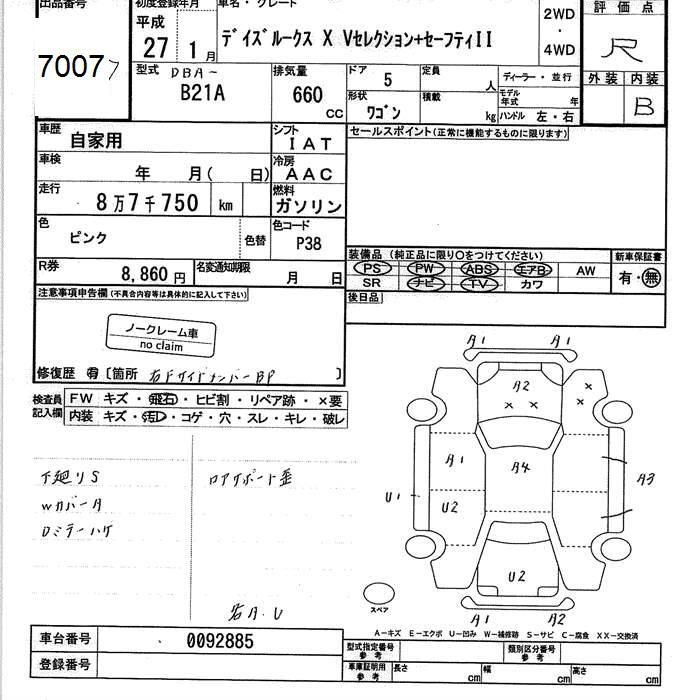 出品番号 初度登録年月 車名・グレード 評価点
7007 平成 27 1月 デイズルークス X Vセレクション+セーフティII 2WD・4WD R
型式 DBA- B21A 排気量 660 cc ドア 5 定員 人 ディーラー・並行 外装 内装 B
形状 ワゴン 積載 kg モデル年式 年 ハンドル 左・右
車歴 自家用 シフト IAT セールスポイント(正常に機能するものに限ります)
車検 年 月( 日) 冷房 AAC
走行 8万7千750 km 燃料 ガソリン
色 ピンク 色替 色コード P38
装備品 (純正品に限り○をつけてください) 新車保証書
PS PW ABS エアB AW 有・無
SR ナビ TV カワ
R券 8,860円 名変通知期限 月 日
後日品
注意事項申告欄(不具合内容等は具体的に記入して下さい)
ノークレーム車
no claim
修復歴 有 [箇所 右Fサイドメンバー BP ]
検査員記入欄 FW キズ・飛石・ヒビ割・リペア跡・×要
内装 キズ・汚レ・コゲ・穴・スレ・キレ・破レ
下廻りS ロアサポート歪
Wカバー A
Dミラーハゲ
右A.U
A1 A1
A2
× × × ×
A1 A4 A3
U1 U2
U2
スペア A1 A2
A-キズ E-エクボ U-凹み W-補修跡 S-サビ C-腐食 XX-交換済
車台番号 0092885 型式指定番号 参考 類別区分番号 参考
登録番号 車庫証明用 参考 長さ cm 幅 cm 高さ cm